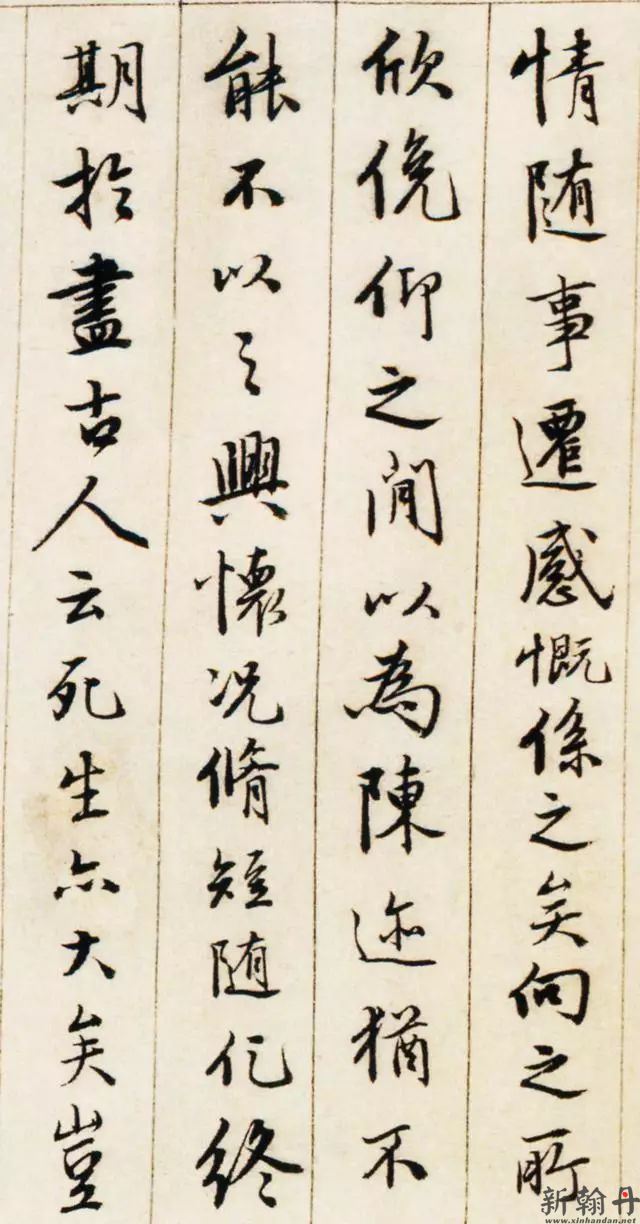 情随事遷感慨係之矣向之所
欣俛仰之間以為陳迹猶不
能不以之興懷況脩短随化終
期於盡古人云死生亦大矣豈
新翰丹
www.xinhandan.net